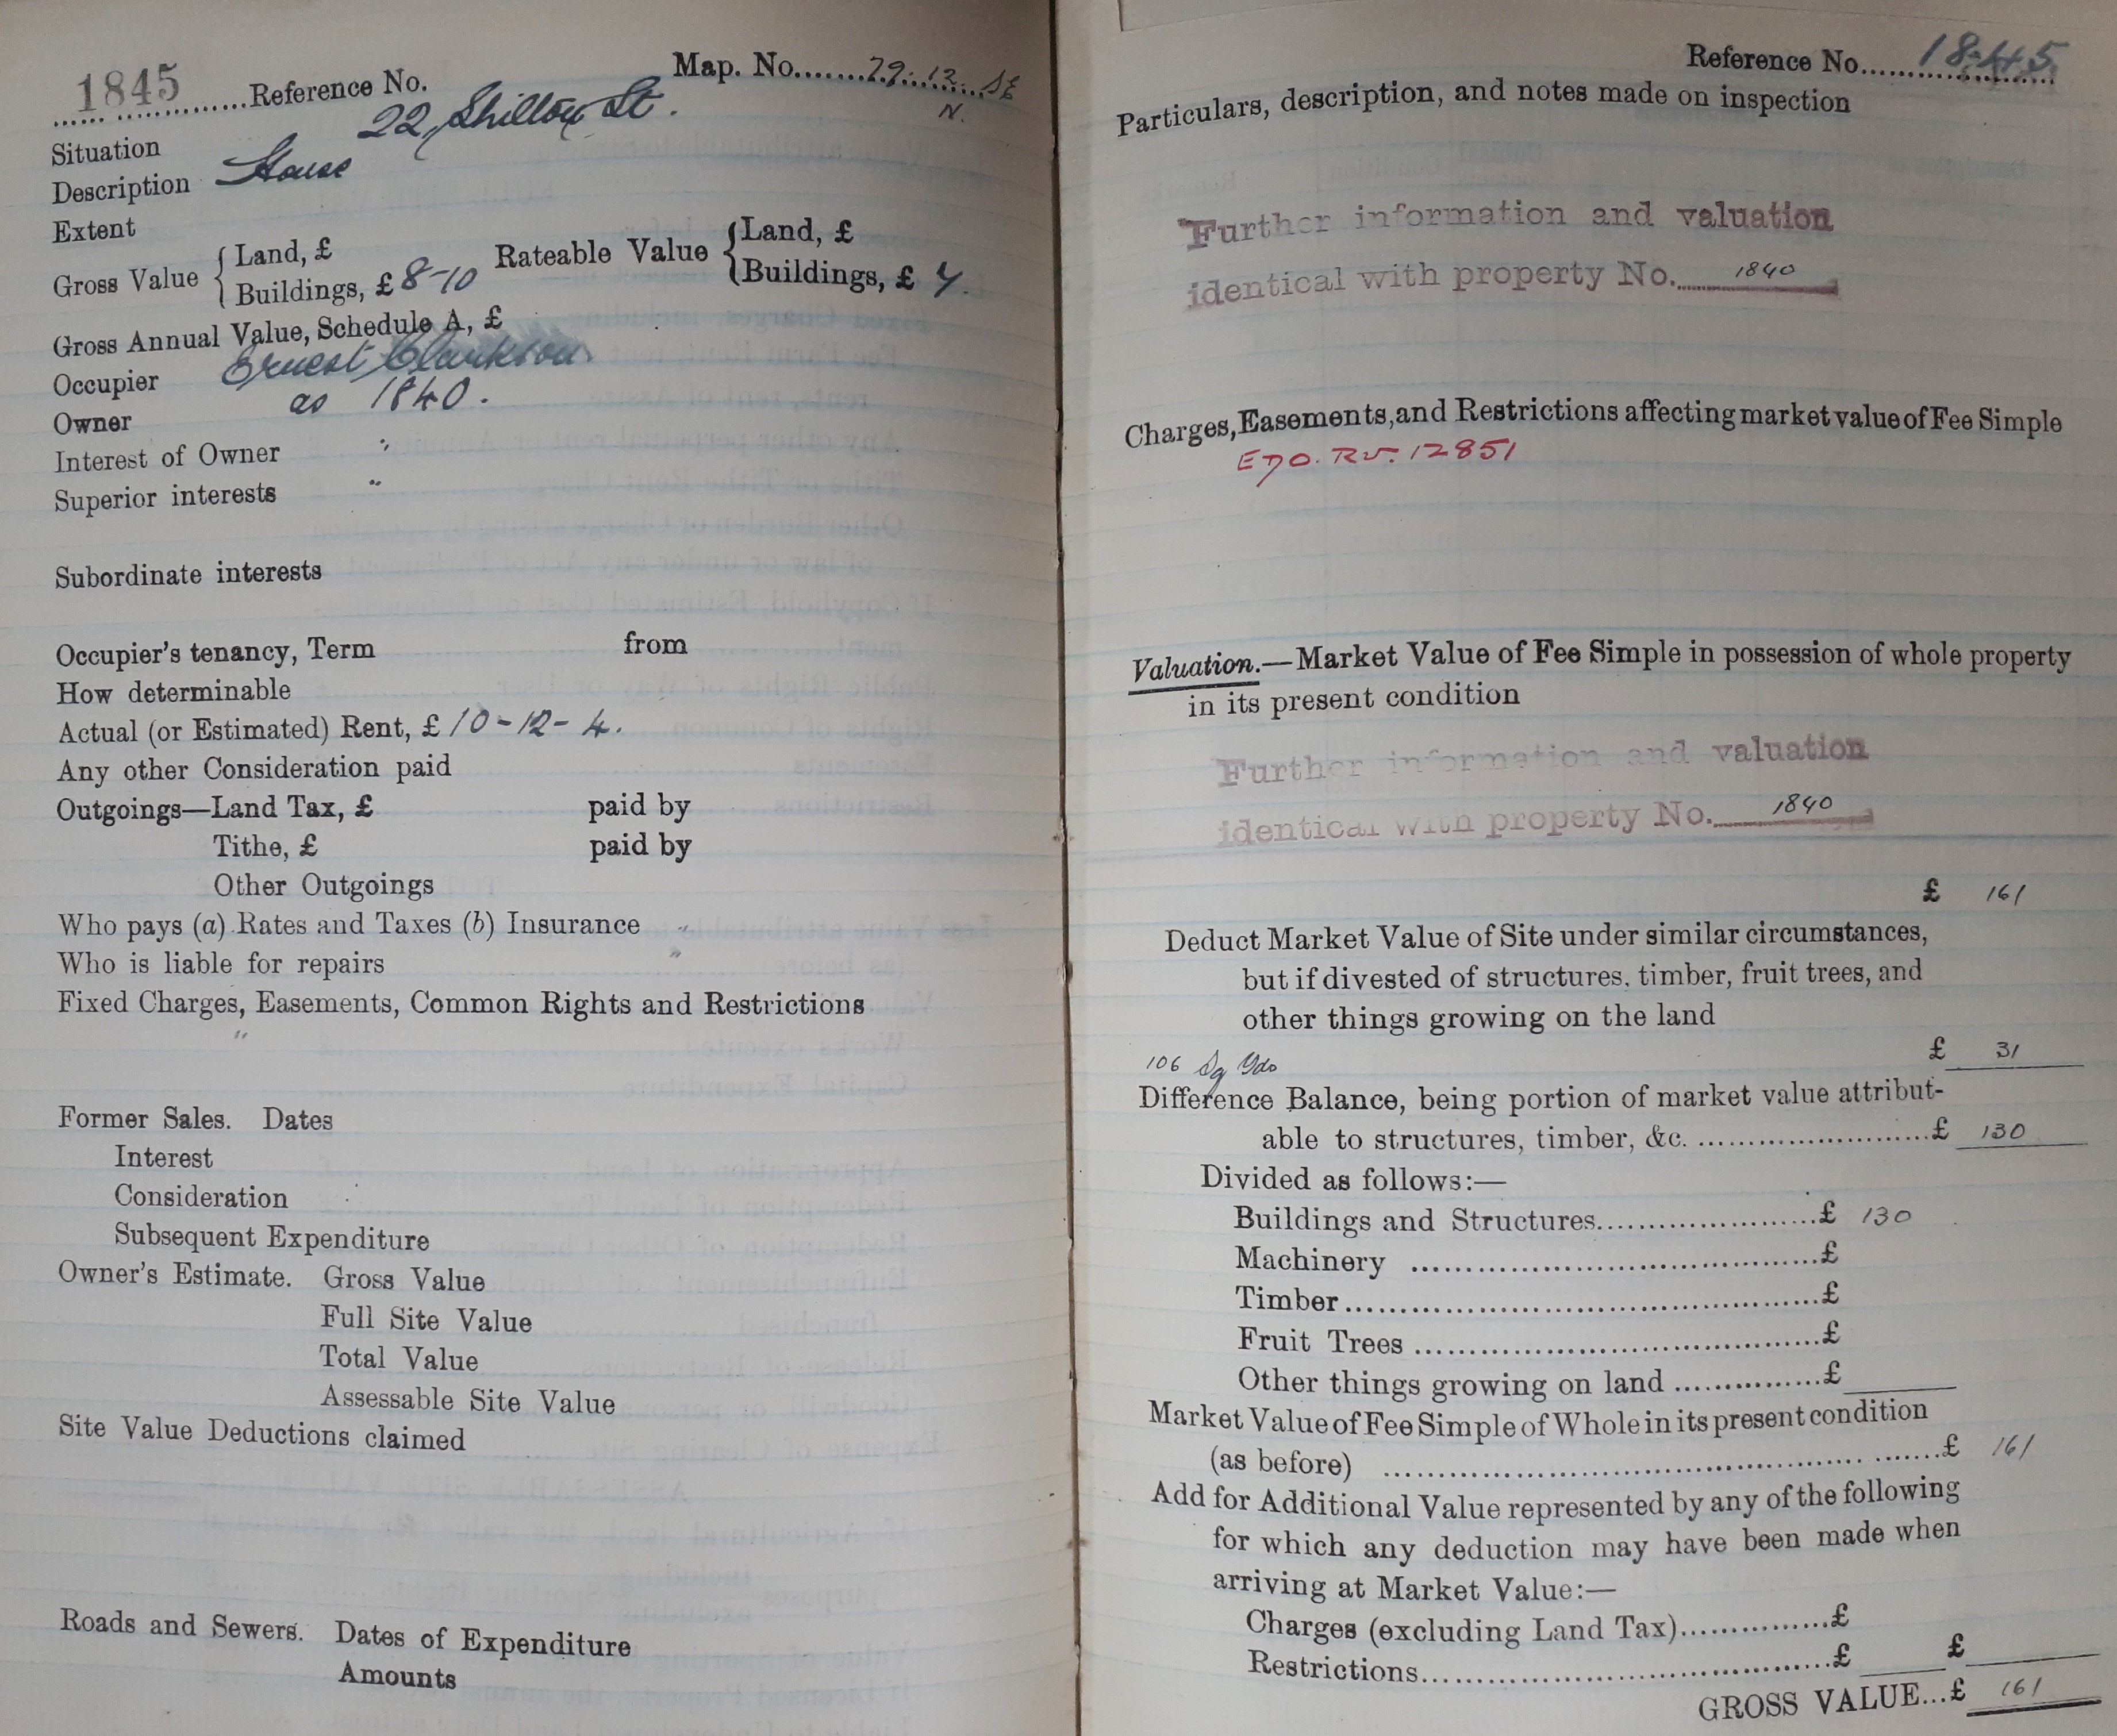 1845 Reference No. Map. No. 29.12. SE
N.
Situation 22, Shilton St.
Description House
Extent
Gross Value { Land, £ Rateable Value { Land, £
Buildings, £ 8-10 Buildings, £
Gross Annual Value, Schedule A, £
Occupier Ernest Clarkson
Owner as 1840.
Interest of Owner "
Superior interests "
Subordinate interests
Occupier's tenancy, Term from
How determinable
Actual (or Estimated) Rent, £ 10-12-4.
Any other Consideration paid
Outgoings—Land Tax, £ paid by
Tithe, £ paid by
Other Outgoings
Who pays (a) Rates and Taxes (b) Insurance "
Who is liable for repairs "
Fixed Charges, Easements, Common Rights and Restrictions
"
Former Sales. Dates
Interest
Consideration
Subsequent Expenditure
Owner's Estimate. Gross Value
Full Site Value
Total Value
Assessable Site Value
Site Value Deductions claimed
Roads and Sewers. Dates of Expenditure
Amounts
Reference No. 1845
Particulars, description, and notes made on inspection
Further information and valuation
identical with property No. 1840
Charges, Easements, and Restrictions affecting market value of Fee Simple
12851
Valuation.—Market Value of Fee Simple in possession of whole property
in its present condition
Further information and valuation
identical with property No. 1840
£ 161
Deduct Market Value of Site under similar circumstances,
but if divested of structures, timber, fruit trees, and
other things growing on the land
£ 31
106 Sq Yds
Difference Balance, being portion of market value attribut-
able to structures, timber, &c. £ 130
Divided as follows:—
Buildings and Structures £ 130
Machinery £
Timber £
Fruit Trees £
Other things growing on land £
Market Value of Fee Simple of Whole in its present condition
(as before) £ 161
Add for Additional Value represented by any of the following
for which any deduction may have been made when
arriving at Market Value:—
Charges (excluding Land Tax) £
Restrictions £ £
GROSS VALUE... £ 161